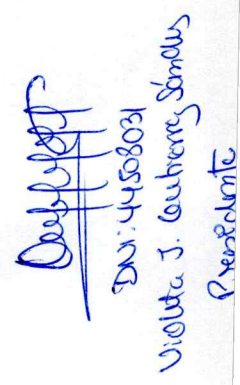 DNI: 44508031
Violeta J. Gutierrez Sánchez
Presidente